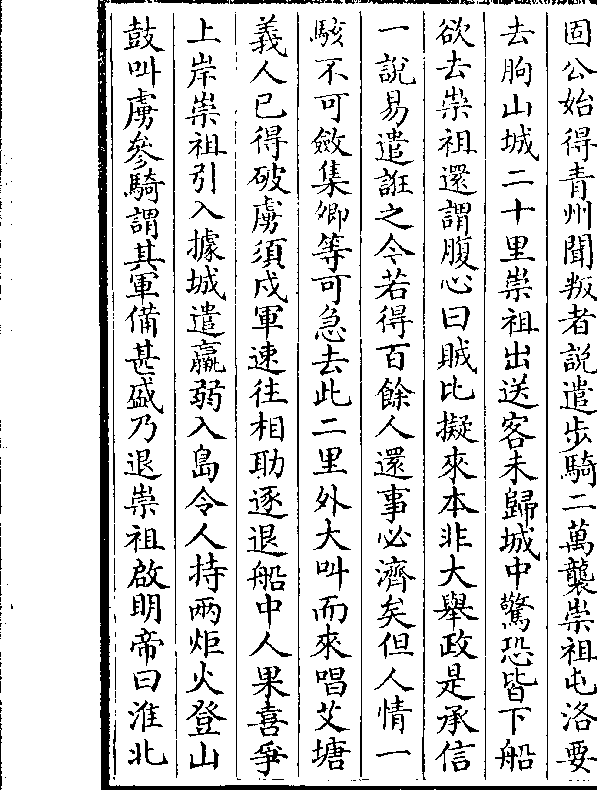 固公始得青州聞叛者說遣步騎二萬襲崇祖屯洛要
去朐山城二十里崇祖出送客未歸城中驚恐皆下船
欲去崇祖還謂腹心曰賊比擬來本非大舉政是承信
一說易遣誑之今若得百餘人還事必濟矣但人情一
駭不可斂集卿等可急去此二里外大叫而來唱艾塘
義人已得破虜須戍軍速往相助逐退船中人果喜爭
上岸崇祖引入據城遣羸弱入島令人持兩炬火登山
鼓叫虜參騎謂其軍備甚盛乃退崇祖啟明帝曰淮北